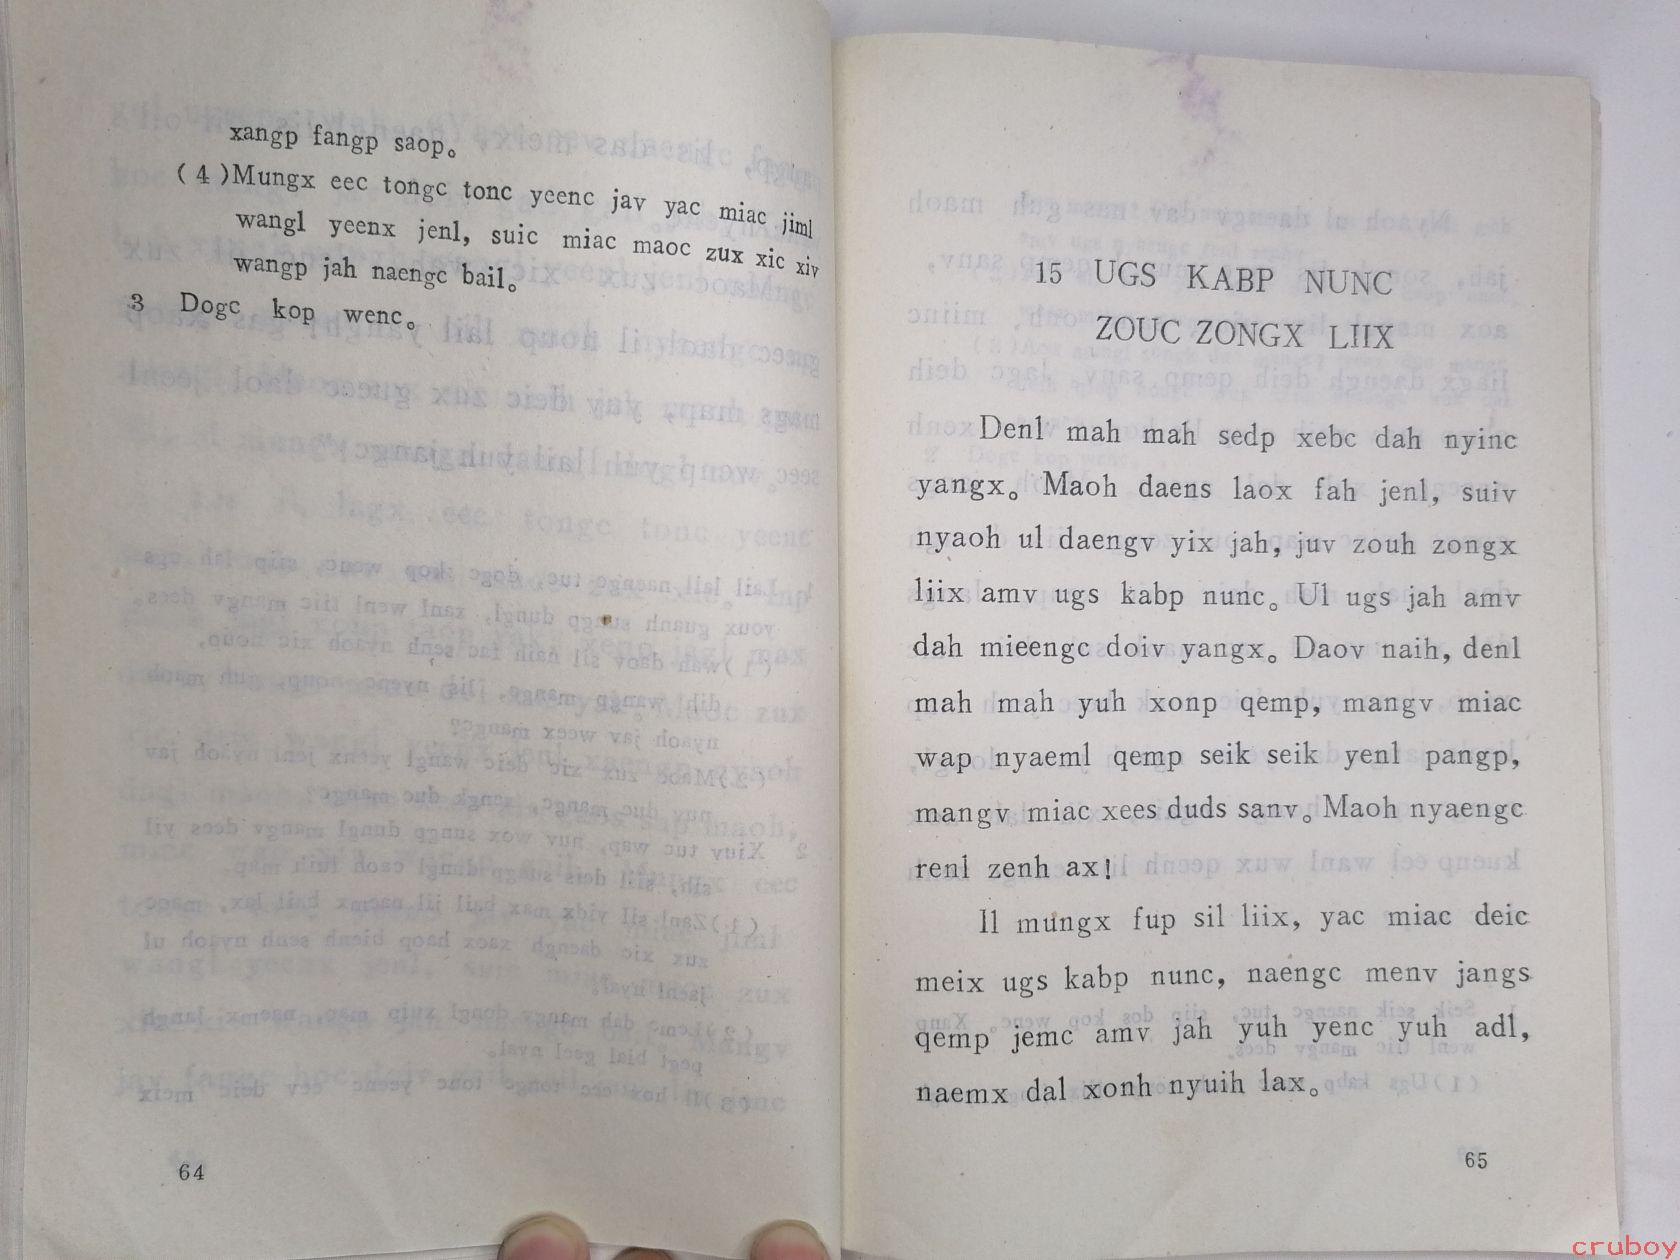 xangp fangp saop。
(4)Mungx eec tongc tonc yeenc jav yac miac jiml
wangl yeenx jenl, suic miac maoc zux xic xiv
wangp jah naengc bail。
3 Dogc kop wenc。
64
15 UGS KABP NUNC
ZOUC ZONGX LIIX
Denl mah mah sedp xebc dah nyinc
yangx。 Maoh daens laox fah jenl, suiv
nyaoh ul daengv yix jah, juv zouh zongx
liix amv ugs kabp nunc。 Ul ugs jah amv
dah mieengc doiv yangx。 Daov naih, denl
mah mah yuh xonp qemp, mangv miac
wap nyaeml qemp seik seik yenl pangp,
mangv miac xees duds sanv。 Maoh nyaengc
renl zenh ax!
Il mungx fup sil liix, yac miac deic
meix ugs kabp nunc, naengc menv jangs
qemp jemc amv jah yuh yenc yuh adl,
naemx dal xonh nyuih lax。
65
cruboy